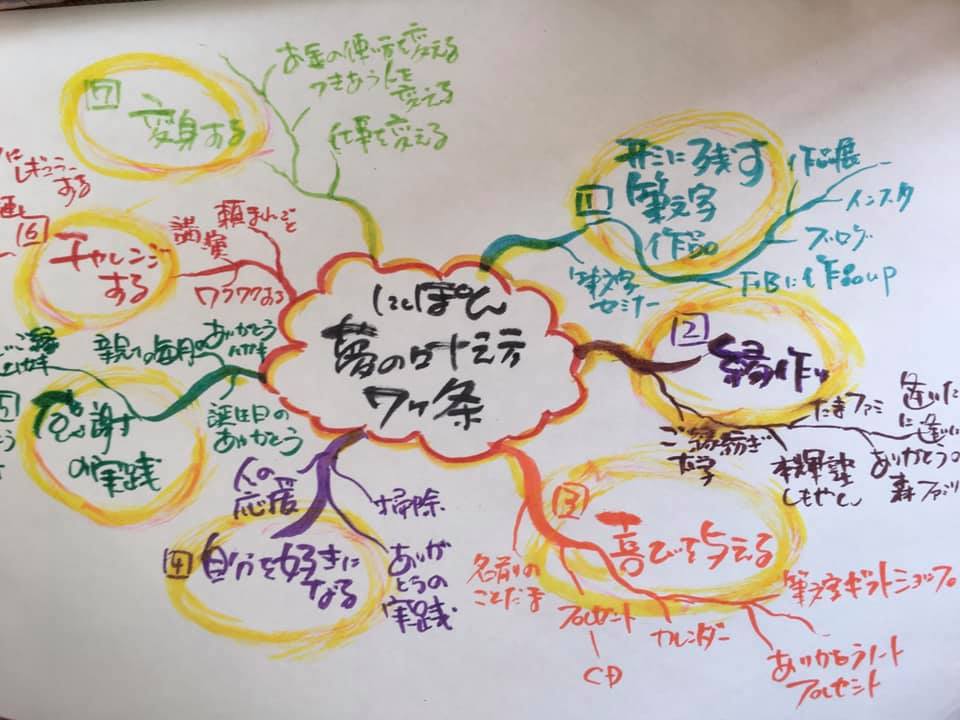 にしぽん
夢のロードミラテ
ワケ条
1
世に残す
筆文字
作品
作品展
インスタ
ブログ
FBに作品up
筆文字
セミナー
2
縁作り
ご縁紡ぎ
大学
本輝塾
しもやん
たまファミ
逢いた
に逢いに
ありがとうの
森ファミリ
3
喜びを与える
名前の
ことだま
プレゼント
CD
カレンダー
筆文字ギフトショップ
ありがとうノート
プレゼント
4
自分を好きに
なる
人の
応援
掃除
ありが
とうの
実践
5
感謝
の実践
親への毎月の
ありがとう
ハガキ
誕生日の
ありがとう
ご縁
ハガキ
6
チャレンジ
する
講演
頼まれごと
ワクワクする
に
レギュラー
する
7
変身する
お金の使い方を変える
つきあう人を
変える
仕事を変える